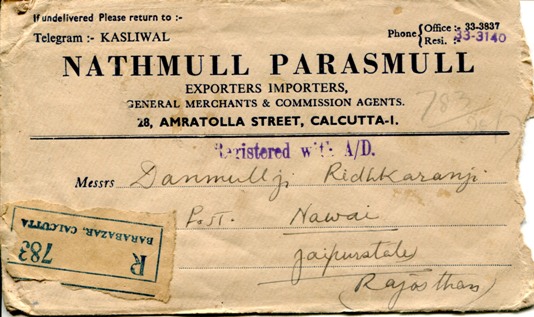 If undelivered Please return to :-
Telegram :- KASLIWAL
Phone { Office :- 33-3837
Resi. :- 33-3140
NATHMULL PARASMULL
EXPORTERS IMPORTERS,
GENERAL MERCHANTS & COMMISSION AGENTS.
28, AMRATOLLA STREET, CALCUTTA-1.
Registered with A/D.
Messrs Danmullji Ridhkaranji
Post. Nawai
Jaipurstate
(Rajosthan)
R
BARABAZAR, CALCUTTA
783
783